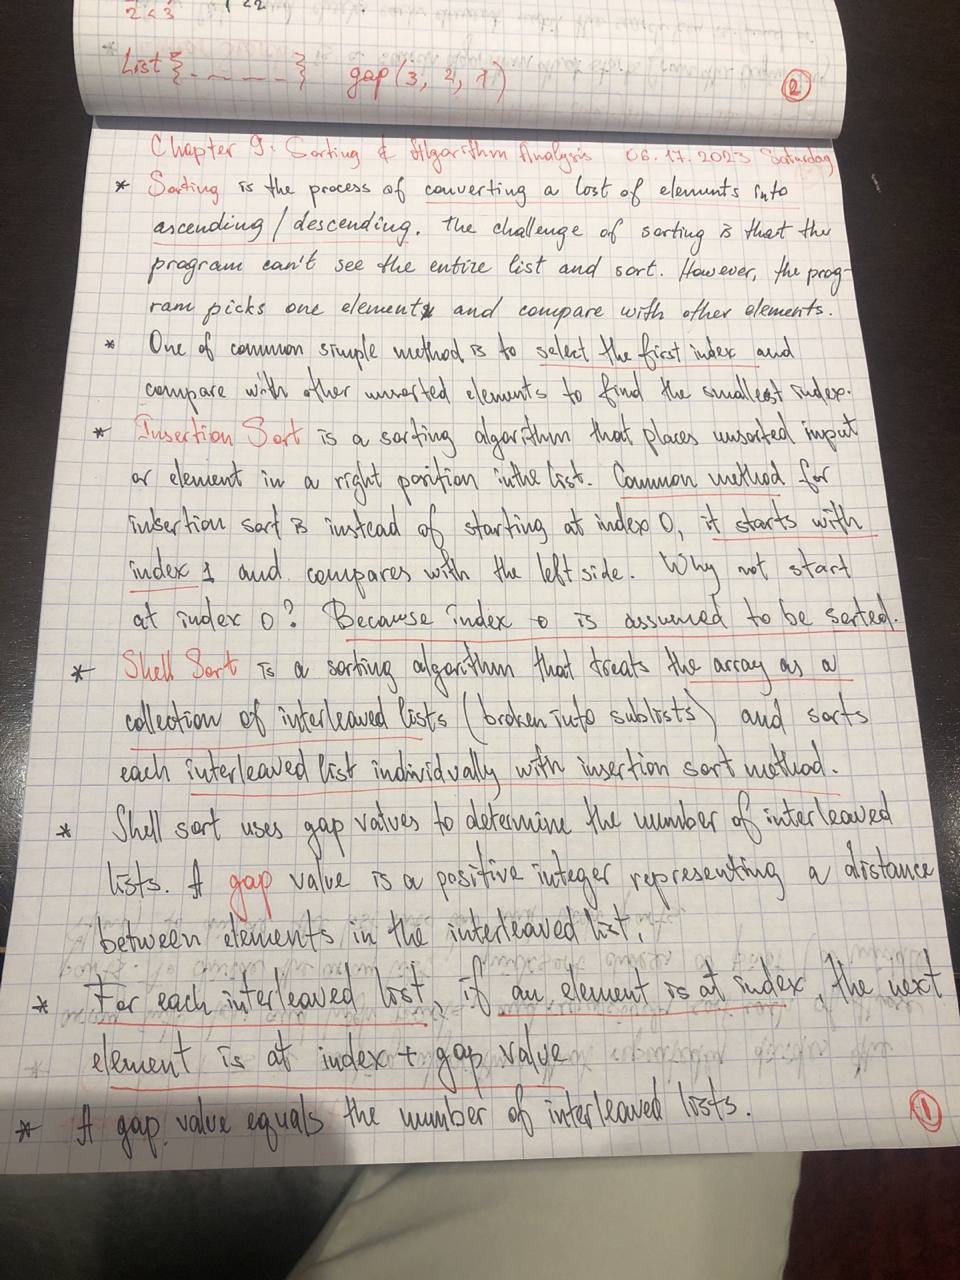 2 < 3 1 < 2
* List {- ~ - - -} gap (3, 2, 1)
2
Chapter 9. Sorting & Algorithm Analysis 06.17.2023 Saturday
* Sorting is the process of converting a lost of elements into
ascending / descending. The challenge of sorting is that the
program can't see the entire list and sort. However, the prog-
ram picks one element and compare with other elements.
* One of common simple method is to select the first index and
compare with other unsorted elements to find the smallest index.
* Insertion Sort is a sorting algorithm that places unsorted input
or element in a right position in the list. Common method for
insertion sort is instead of starting at index 0, it starts with
index 1 and compares with the left side. Why not start
at index 0? Because index 0 is assumed to be sorted.
* Shell Sort is a sorting algorithm that treats the array as a
collection of interleaved lists (broken into sublists) and sorts
each interleaved list individually with insertion sort method.
* Shell sort uses gap values to determine the number of interleaved
lists. A gap value is a positive integer representing a distance
between elements in the interleaved list.
* For each interleaved list, if an element is at index, the next
element is at index + gap value
* A gap value equals the number of interleaved lists.
1